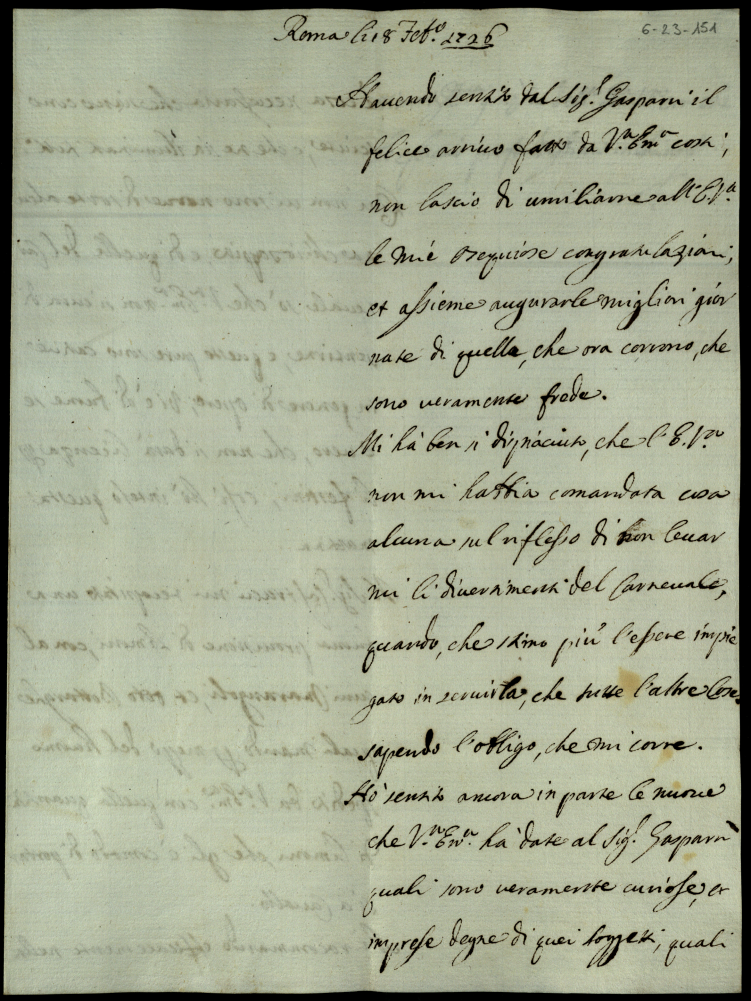 Roma li 18 Feb.º 1726
6-23-151
Havendo sentito dal Sig.r Gasparri il
felice arrivo fatto da V.ra Em.a costì,
non lascio di umiliarne all'E.V.ra
le mie ossequiose congratulazioni,
et assieme augurarle migliori gior
nate di quelle, che ora corrono, che
sono veramente frede.
Mi hà ben sì dispiaciuto, che l'E.V.ra
non mi habbia comandata cosa
alcuna sul riflesso di non levar
mi li divertimenti del Carnevale,
quando, che stimo più l'essere impie
gato in servirla, che tutte l'altre Cose,
sapendo l'obligo, che mi corre.
Hò sentito ancora in parte le nuove
che V.ra Em.a hà date al Sig.r Gasparri
quali sono veramente curiose, et
imprese degne di quei soggetti, quali